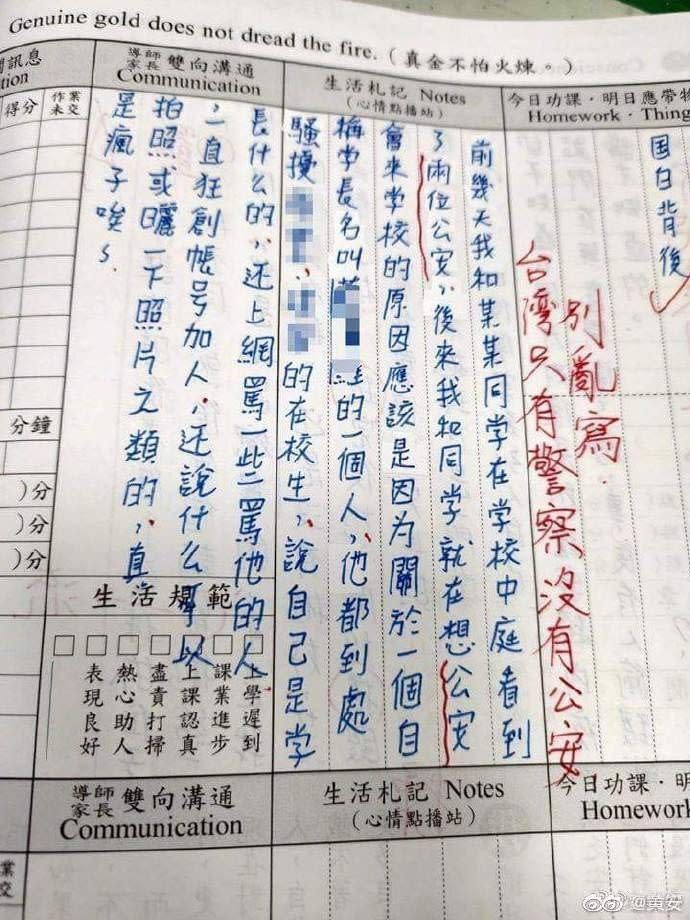 Genuine gold does not dread the fire.(真金不怕火煉。)
訊息
tion
導師
家長 雙向溝通
Communication
生活札記 Notes
(心情點播站)
今日功課・明日應帶物
Homework・Thing
得分
作業未交
国白背後
別亂寫.
台灣只有警察没有公安
前幾天我和某某同学在学校中庭看到
了兩位公安,後來我和同学就在想公安
會来学校的原因應該是因为關於一個自
稱学長名叫 的一個人,他都到處
騷擾 、 的在校生,說自己是学
長什么的,还上網罵一些罵他的人
,一直狂創帳号加人,还說什么可以
拍照或曬一下照片之類的,真
是瘋子唉~
分鐘
)分
)分
)分
生活規範
上學遲到
課業進步
上課認真
盡責打掃
熱心助人
表現良好
導師
家長 雙向溝通
Communication
生活札記 Notes
(心情點播站)
今日功課・明
Homework
業
交
@黄安